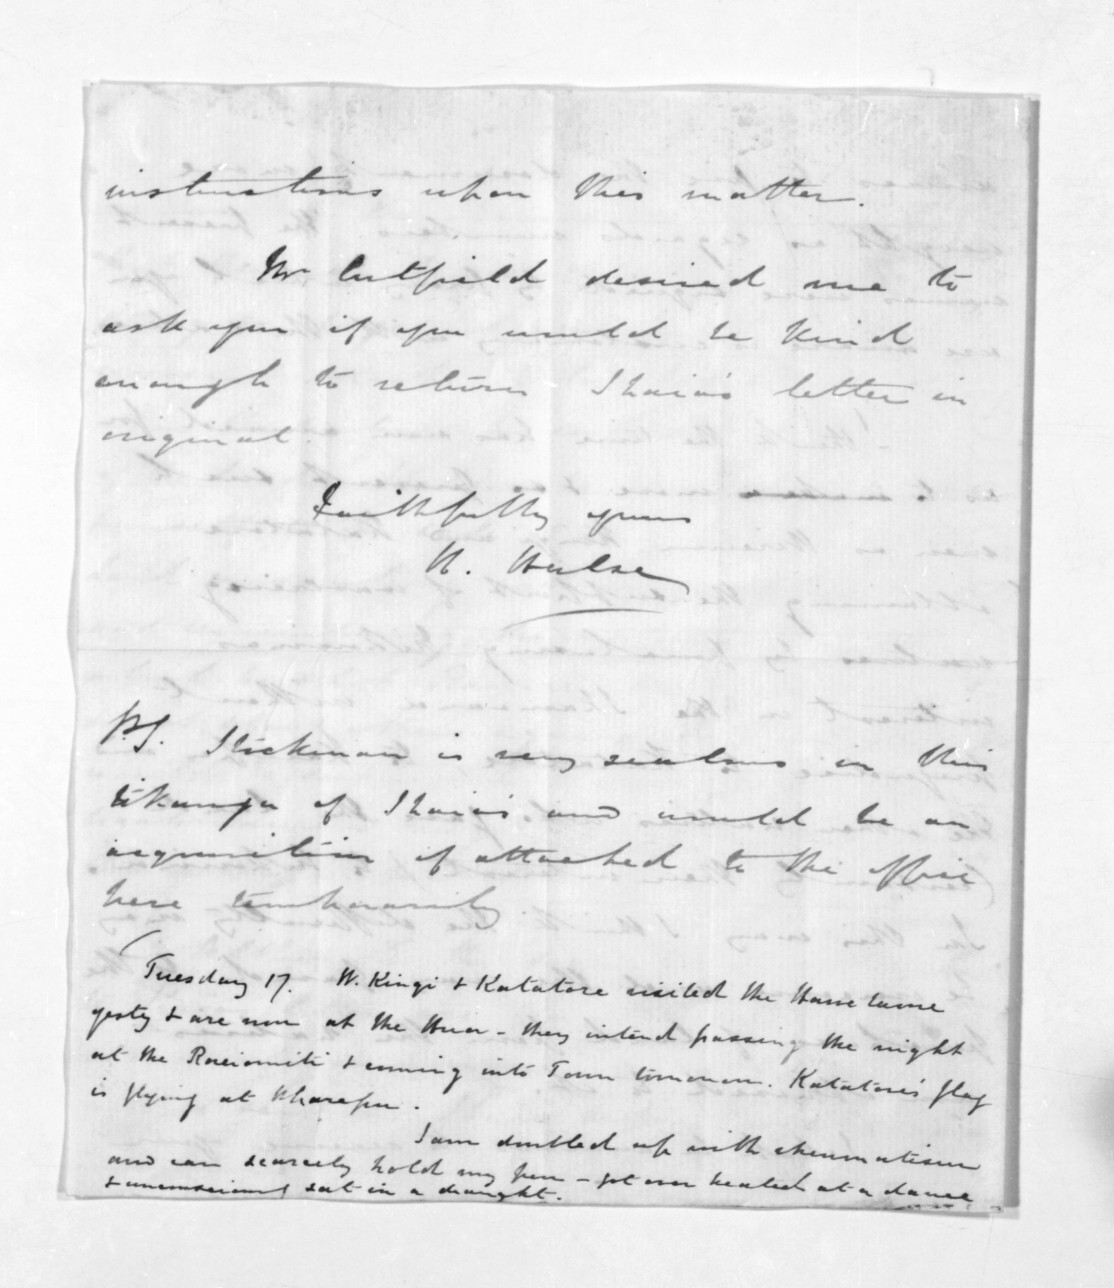 instructions upon this matter.
Mr Cutfield desired me to
ask you if you would be kind
enough to return Ihaia's letter in
original.
Faithfully yours
H. Halse
P.S. Stockman is very zealous in this
tikanga of Ihaia's and would be an
acquisition if attached to the office
here temporarily
Tuesday 17. W. Kingi & Katatore visited the Hauetaure
yesty & are now at the Hua - they intend passing the night
at the & coming into Town tomorrow. Katatore's flag
is flying at Wharepu.
I am doubled up with rheumatism
and can scarcely hold my pen - got over heated at a dance
& unconsciously sat in a draught.